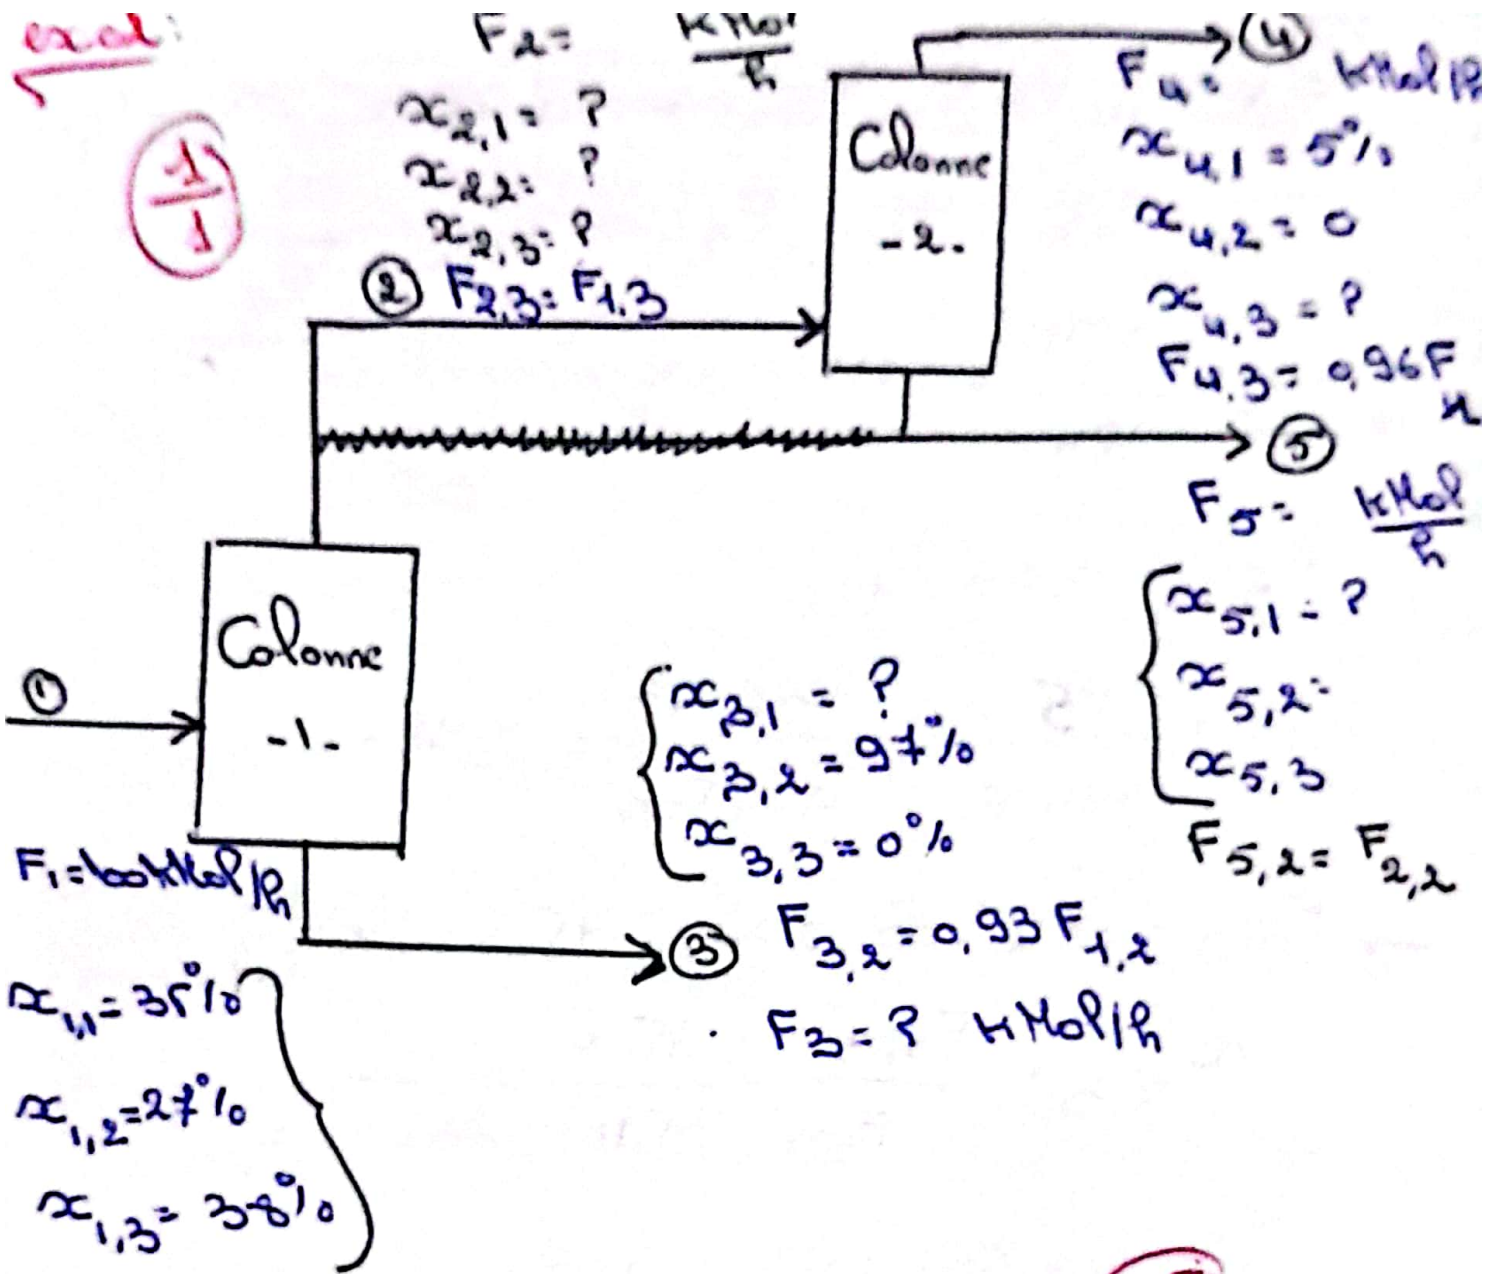 exo1:
1/1
F2= kMol/h
x2,1= ?
x2,2= ?
x2,3= ?
② F2,3= F1,3
Colonne
-2-
④
F4= kMol/h
x4,1=5%
x4,2=0
x4,3=?
F4,3=0,96F
⑤
F5= kMol/h
x5,1=?
x5,2=
x5,3
F5,2=F2,2
Colonne
-1-
①
F1=100kMol/h
x1,1=35%
x1,2=27%
x1,3=38%
x3,1=?
x3,2=97%
x3,3=0%
③ F3,2=0,93F1,2
F3=? kMol/h